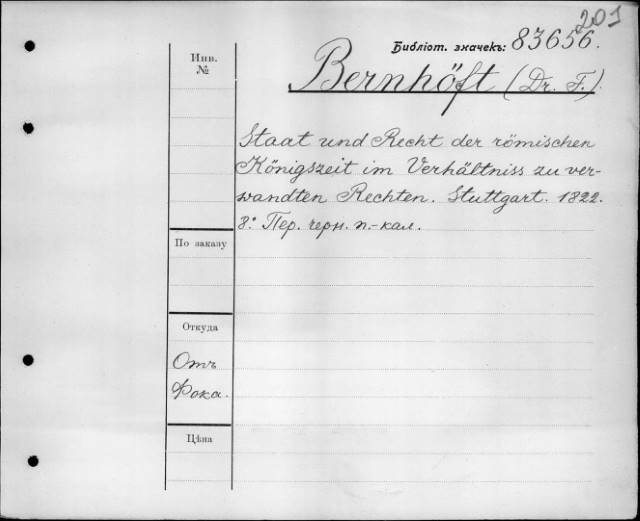 201
Библіот. значекъ: 83656.
Инв.
№
Bernhöft (Dr. F.)
Staat und Recht der römischen
Königszeit im Verhältniss zu ver-
wandten Rechten. Stuttgart. 1822.
8° Пер. черн. п.-кал.
По заказу
Откуда
Отъ
Фока.
Цѣна